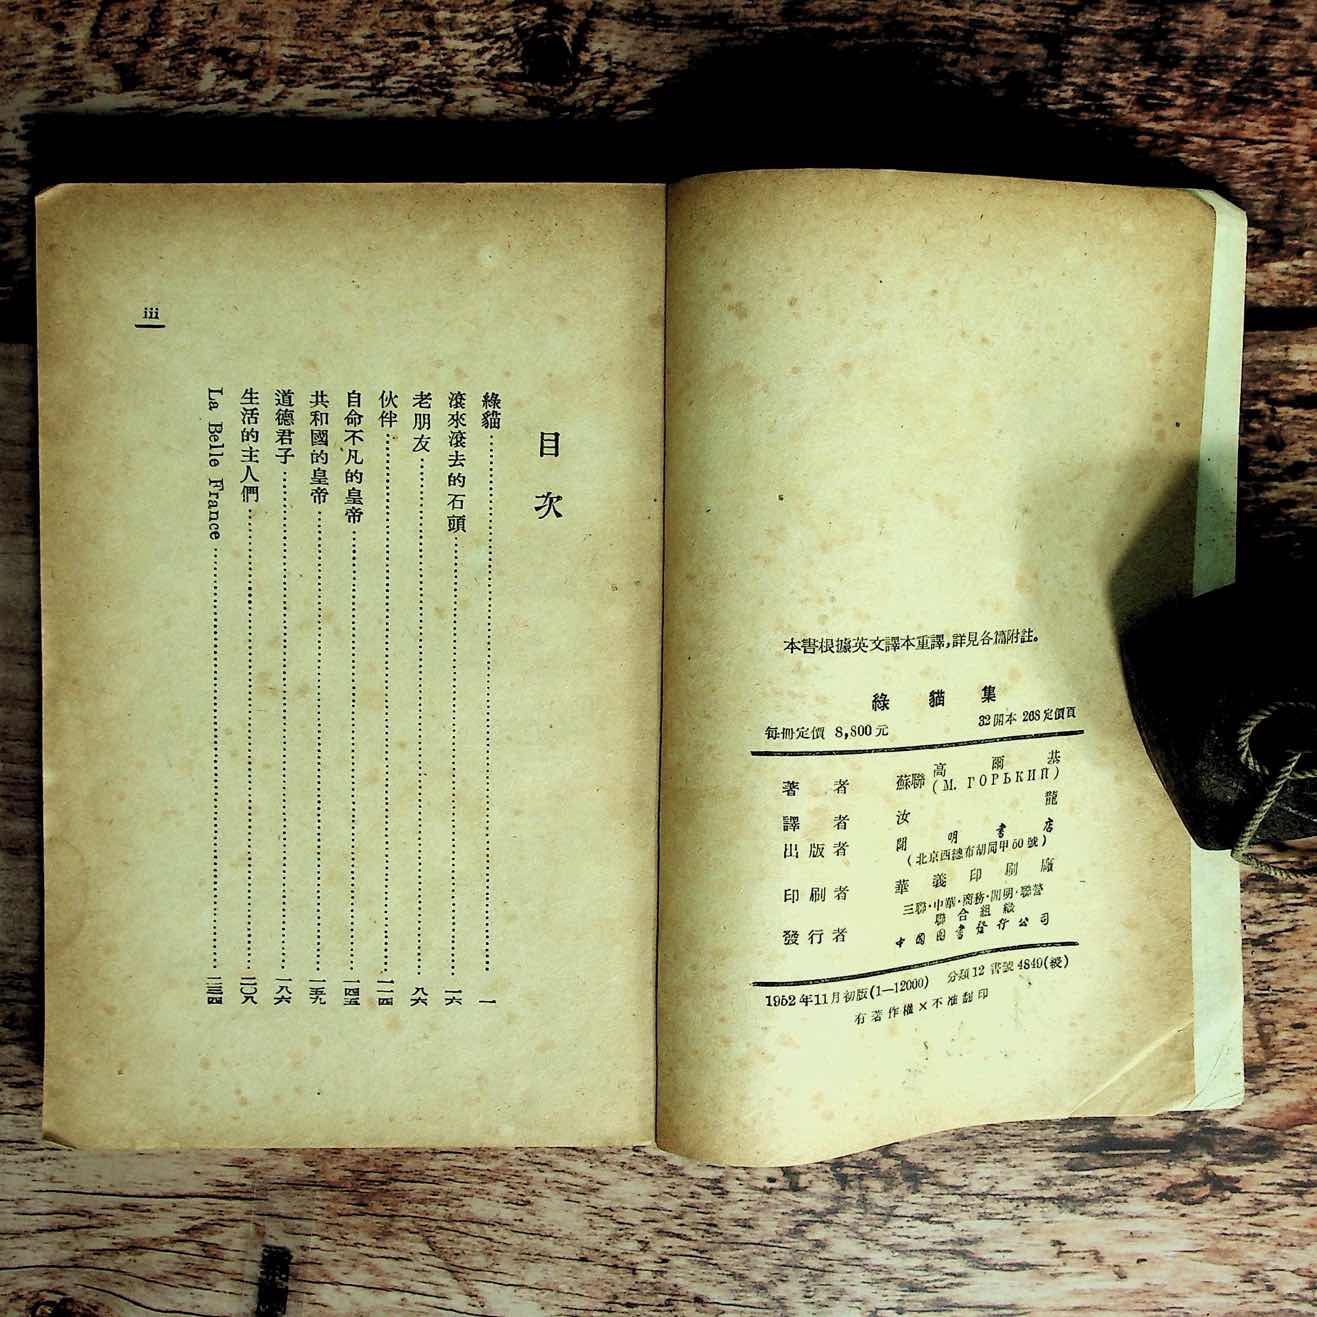 本書根據英文譯本重譯，詳見各篇附註。
綠貓集
每冊定價 8,800元 32開本 268定價頁
著者 蘇聯 高爾基
(М. ГОРЬКИЙ)
譯者 汝龍
出版者 開明書店
(北京西總布胡同甲50號)
印刷者 華義印刷廠
三聯·中華·商務·開明·聯營
聯合組織
發行者 中國圖書發行公司
1952年11月初版(1—12000) 分類12 書號4849(緩)
有著作權×不准翻印
目次
綠貓……一
滾來滾去的石頭……一六
老朋友……八六
伙伴……一一四
自命不凡的皇帝……一四五
共和國的皇帝……一五九
道德君子……一八六
生活的主人們……二〇八
La Belle France……二三四
iii